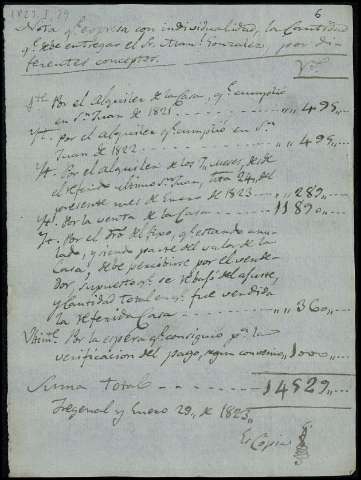 1823.I.29
6
Nota qe. expresa con individualidad, la Cantidad
qe. debe entregar el Sr. Gonzalez, por di-
ferentes conceptos.
Von.
Por el Alquiler de la Casa, qe. cumplió
en Sn. Juan de 1821 ,, 495,,
Yt. Por el alquiler qe. cumplió en Sn.
Juan de 1822 ,, 495,,
Yt. Por el alquiler de los 7,, meses, desde
el referido ultimo Sn. Juan, hta 24,, del
presente mes de Enero de 1823 ,, 289,,
Yt. Por la venta de la Casa 11890,,
Yt. Por el dro. del Piso, qe. estando anu-
lado, y siendo parte del valor de la
Casa, debe percibirse por el vende-
dor, supuesto qe. se rebajó del ajuste,
y Cantidad total en qe. fue vendida
la referida Casa ,, 360,,
Por la espera qe. consiguió pa. la
verificacion del pago, segun convenio ,, 1000,,
Suma total 14529,,
Fregenal y Enero 29,, de 1823,,
Es Copia